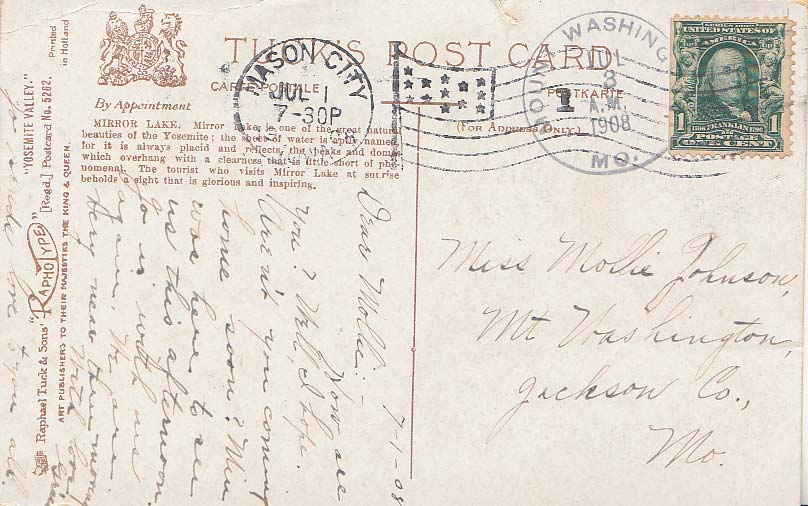 TUCK'S POST CARD
CARTE POSTALE
POSTKARTE
(FOR ADDRESS ONLY)
By Appointment
MASON CITY
JUL 1
7-30P
MOUNT WASHING
JUL
3
A.M.
1908
MO.
1
UNITED STATES OF
AMERICA
1 FRANKLIN 1
ONE CENT
MIRROR LAKE. Mirror Lake is one of the great natural
beauties of the Yosemite; the sheet of water is aptly named,
for it is always placid and reflects the peaks and domes
which overhang with a clearness that is little short of phe-
nomenal. The tourist who visits Mirror Lake at sunrise
beholds a sight that is glorious and inspiring.
Printed
in Holland
"YOSEMITE VALLEY."
Raphael Tuck & Sons' "RAPHOTYPE" [Regd.] Postcard No. 5262.
ART PUBLISHERS TO THEIR MAJESTIES THE KING & QUEEN.
7-1-08
Dear Mollie:-
How are
you? Well, I hope.
Aren't you coming
home soon? Min
was here to see
us this afternoon.
is with us
again. We are
very near them now.
With love
love to you all.
Miss Mollie Johnson,
Mt Washington,
Jackson Co.,
Mo.